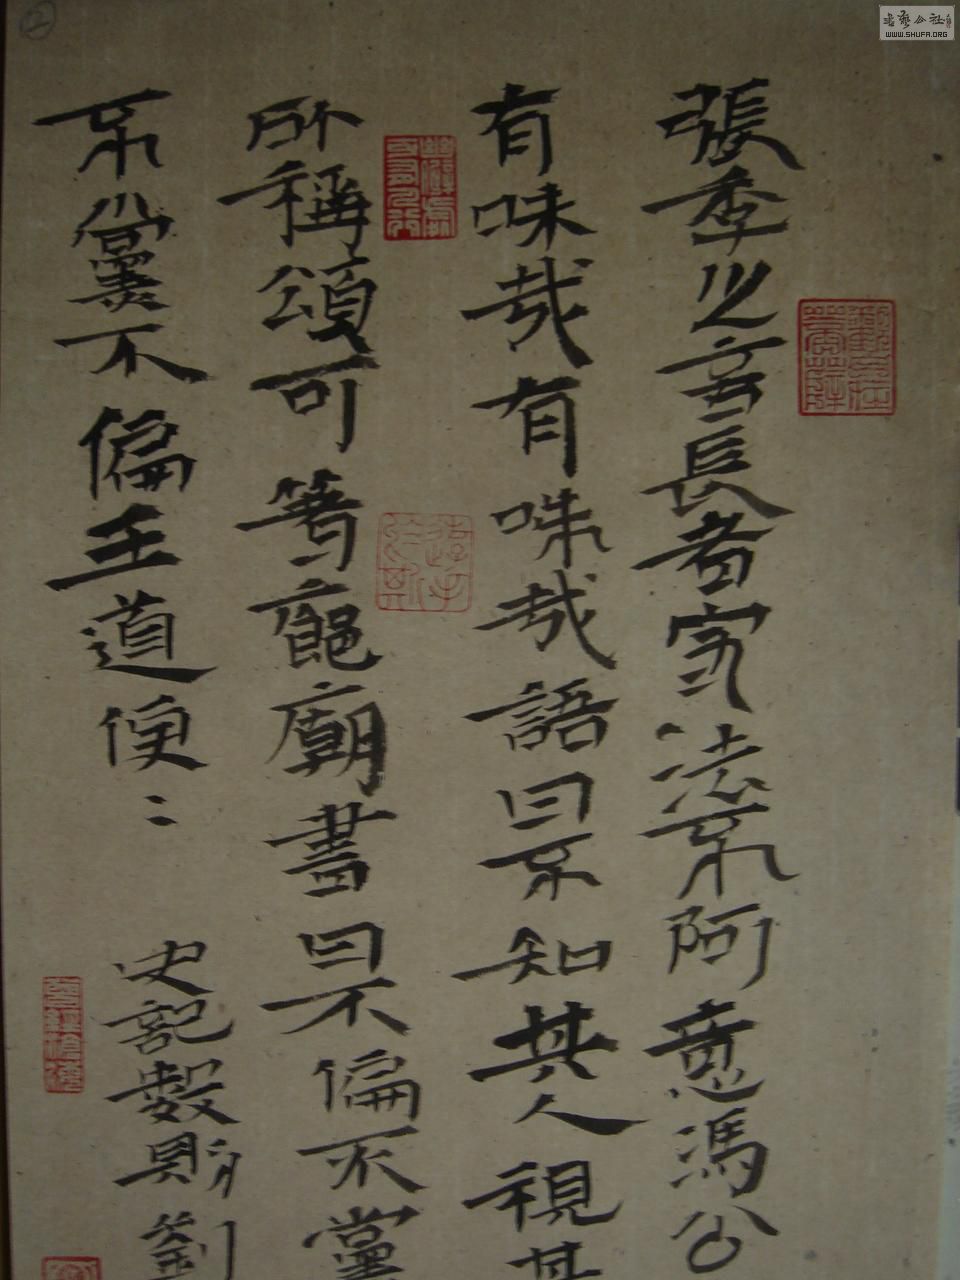 張季之言長者守法不阿意馮公
有味哉有味哉語曰不知其人視其
所稱頌可著廊廟書曰不偏不黨
不黨不偏王道便〻 史記數則 劉
書藝公社
WWW.SHUFA.ORG